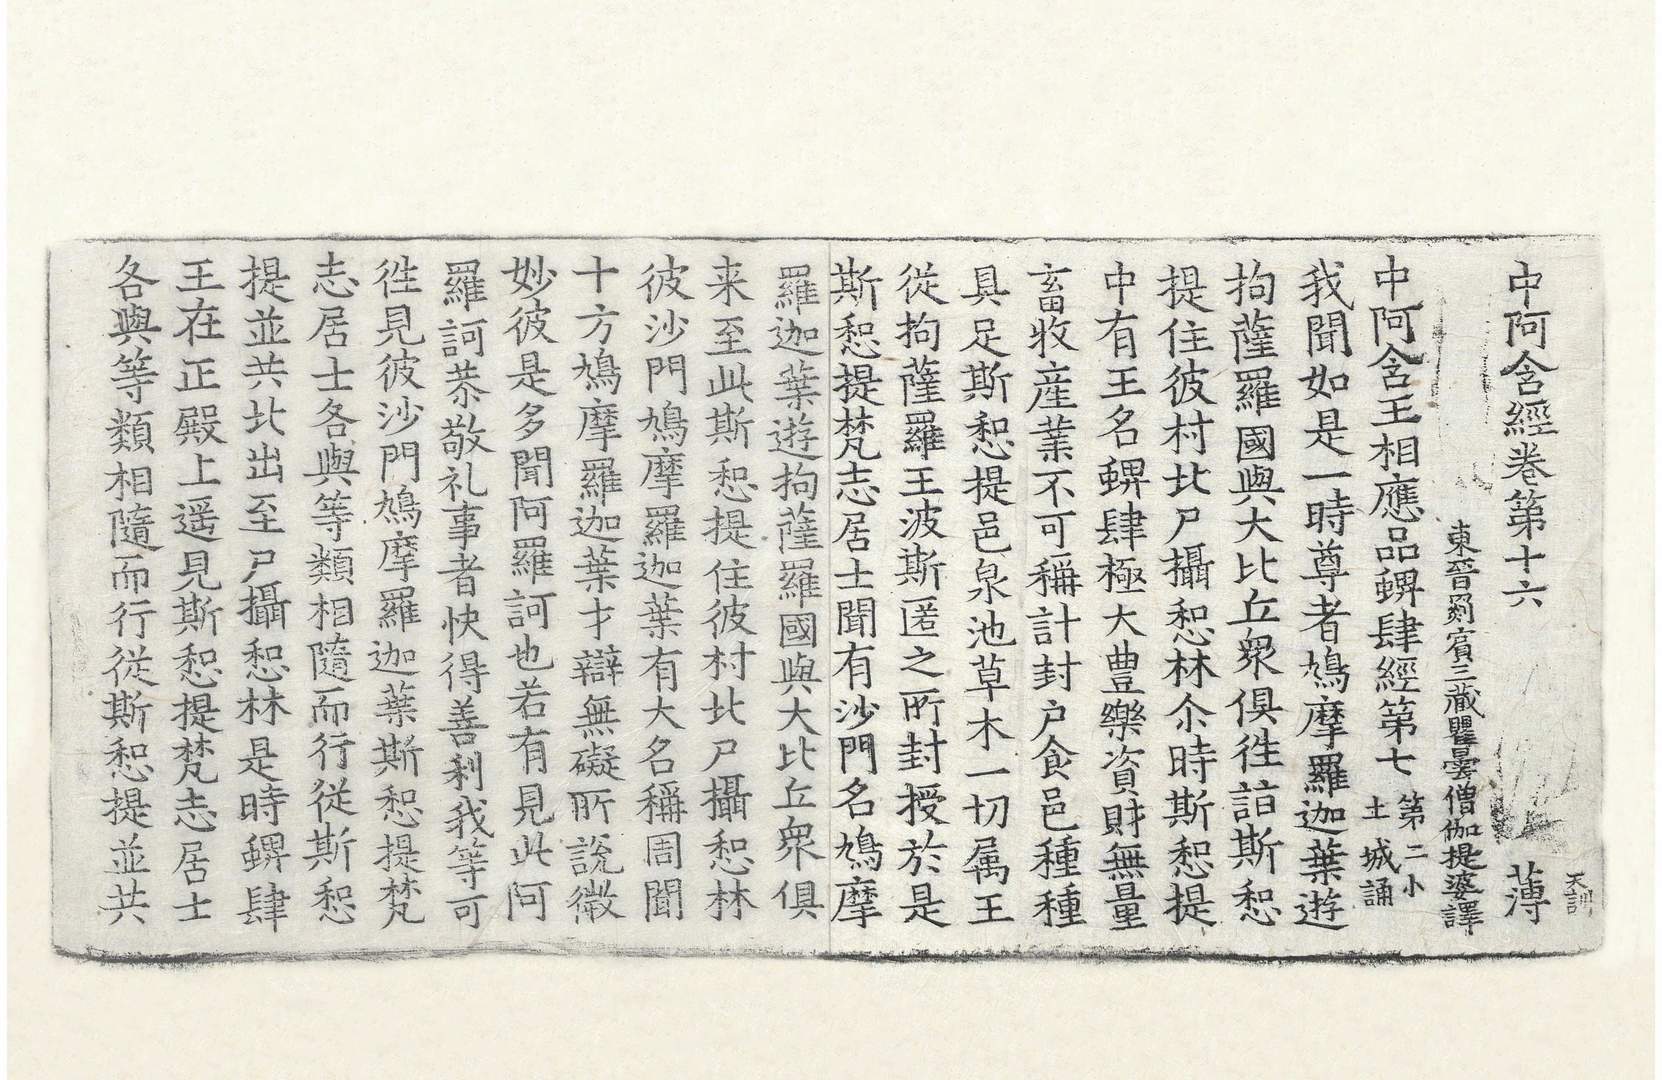 中阿含經卷第十六 薄
天訓
東晉罽賓三藏瞿曇僧伽提婆譯
中阿含王相應品蜱肆經第七 第二小
土城誦
我聞如是一時尊者鳩摩羅迦葉遊
拘薩羅國與大比丘眾俱徃詣斯惒
提住彼村北尸攝惒林尒時斯惒提
中有王名蜱肆極大豊樂資財無量
畜牧産業不可稱計封户食邑種種
具足斯惒提邑泉池草木一切属王
從拘薩羅王波斯匿之所封授於是
斯惒提梵志居士聞有沙門名鳩摩
羅迦葉遊拘薩羅國與大比丘眾俱
来至此斯惒提住彼村北尸攝惒林
彼沙門鳩摩羅迦葉有大名稱周聞
十方鳩摩羅迦葉才辯無礙所說微
妙彼是多聞阿羅訶也若有見此阿
羅訶恭敬礼事者快得善利我等可
徃見彼沙門鳩摩羅迦葉斯惒提梵
志居士各與等類相隨而行從斯惒
提並共北出至尸攝惒林是時蜱肆
王在正殿上遥見斯惒提梵志居士
各與等類相隨而行從斯惒提並共